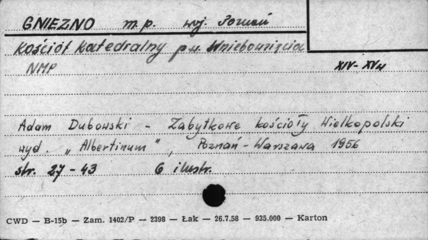 GNIEZNO m.p. woj. Poznań
Kościół katedralny p.w. Wniebowzięcia
NMP XIV-XVw
Adam Dubowski - Zabytkowe kościoły Wielkopolski
wyd. „Albertinum", Poznań-Warszawa 1956
str. 27-43 6 ilustr.
CWD — B-15b — Zam. 1402/P — 2398 — Łak — 26.7.58 — 935.000 — Karton